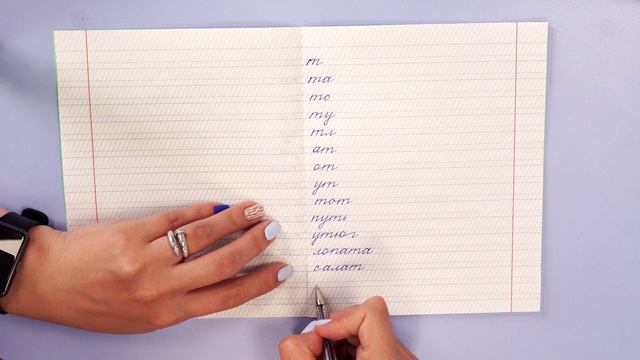 т
та
то
ту
тл
ат
от
ут
тот
путь
утюг
лопата
салат